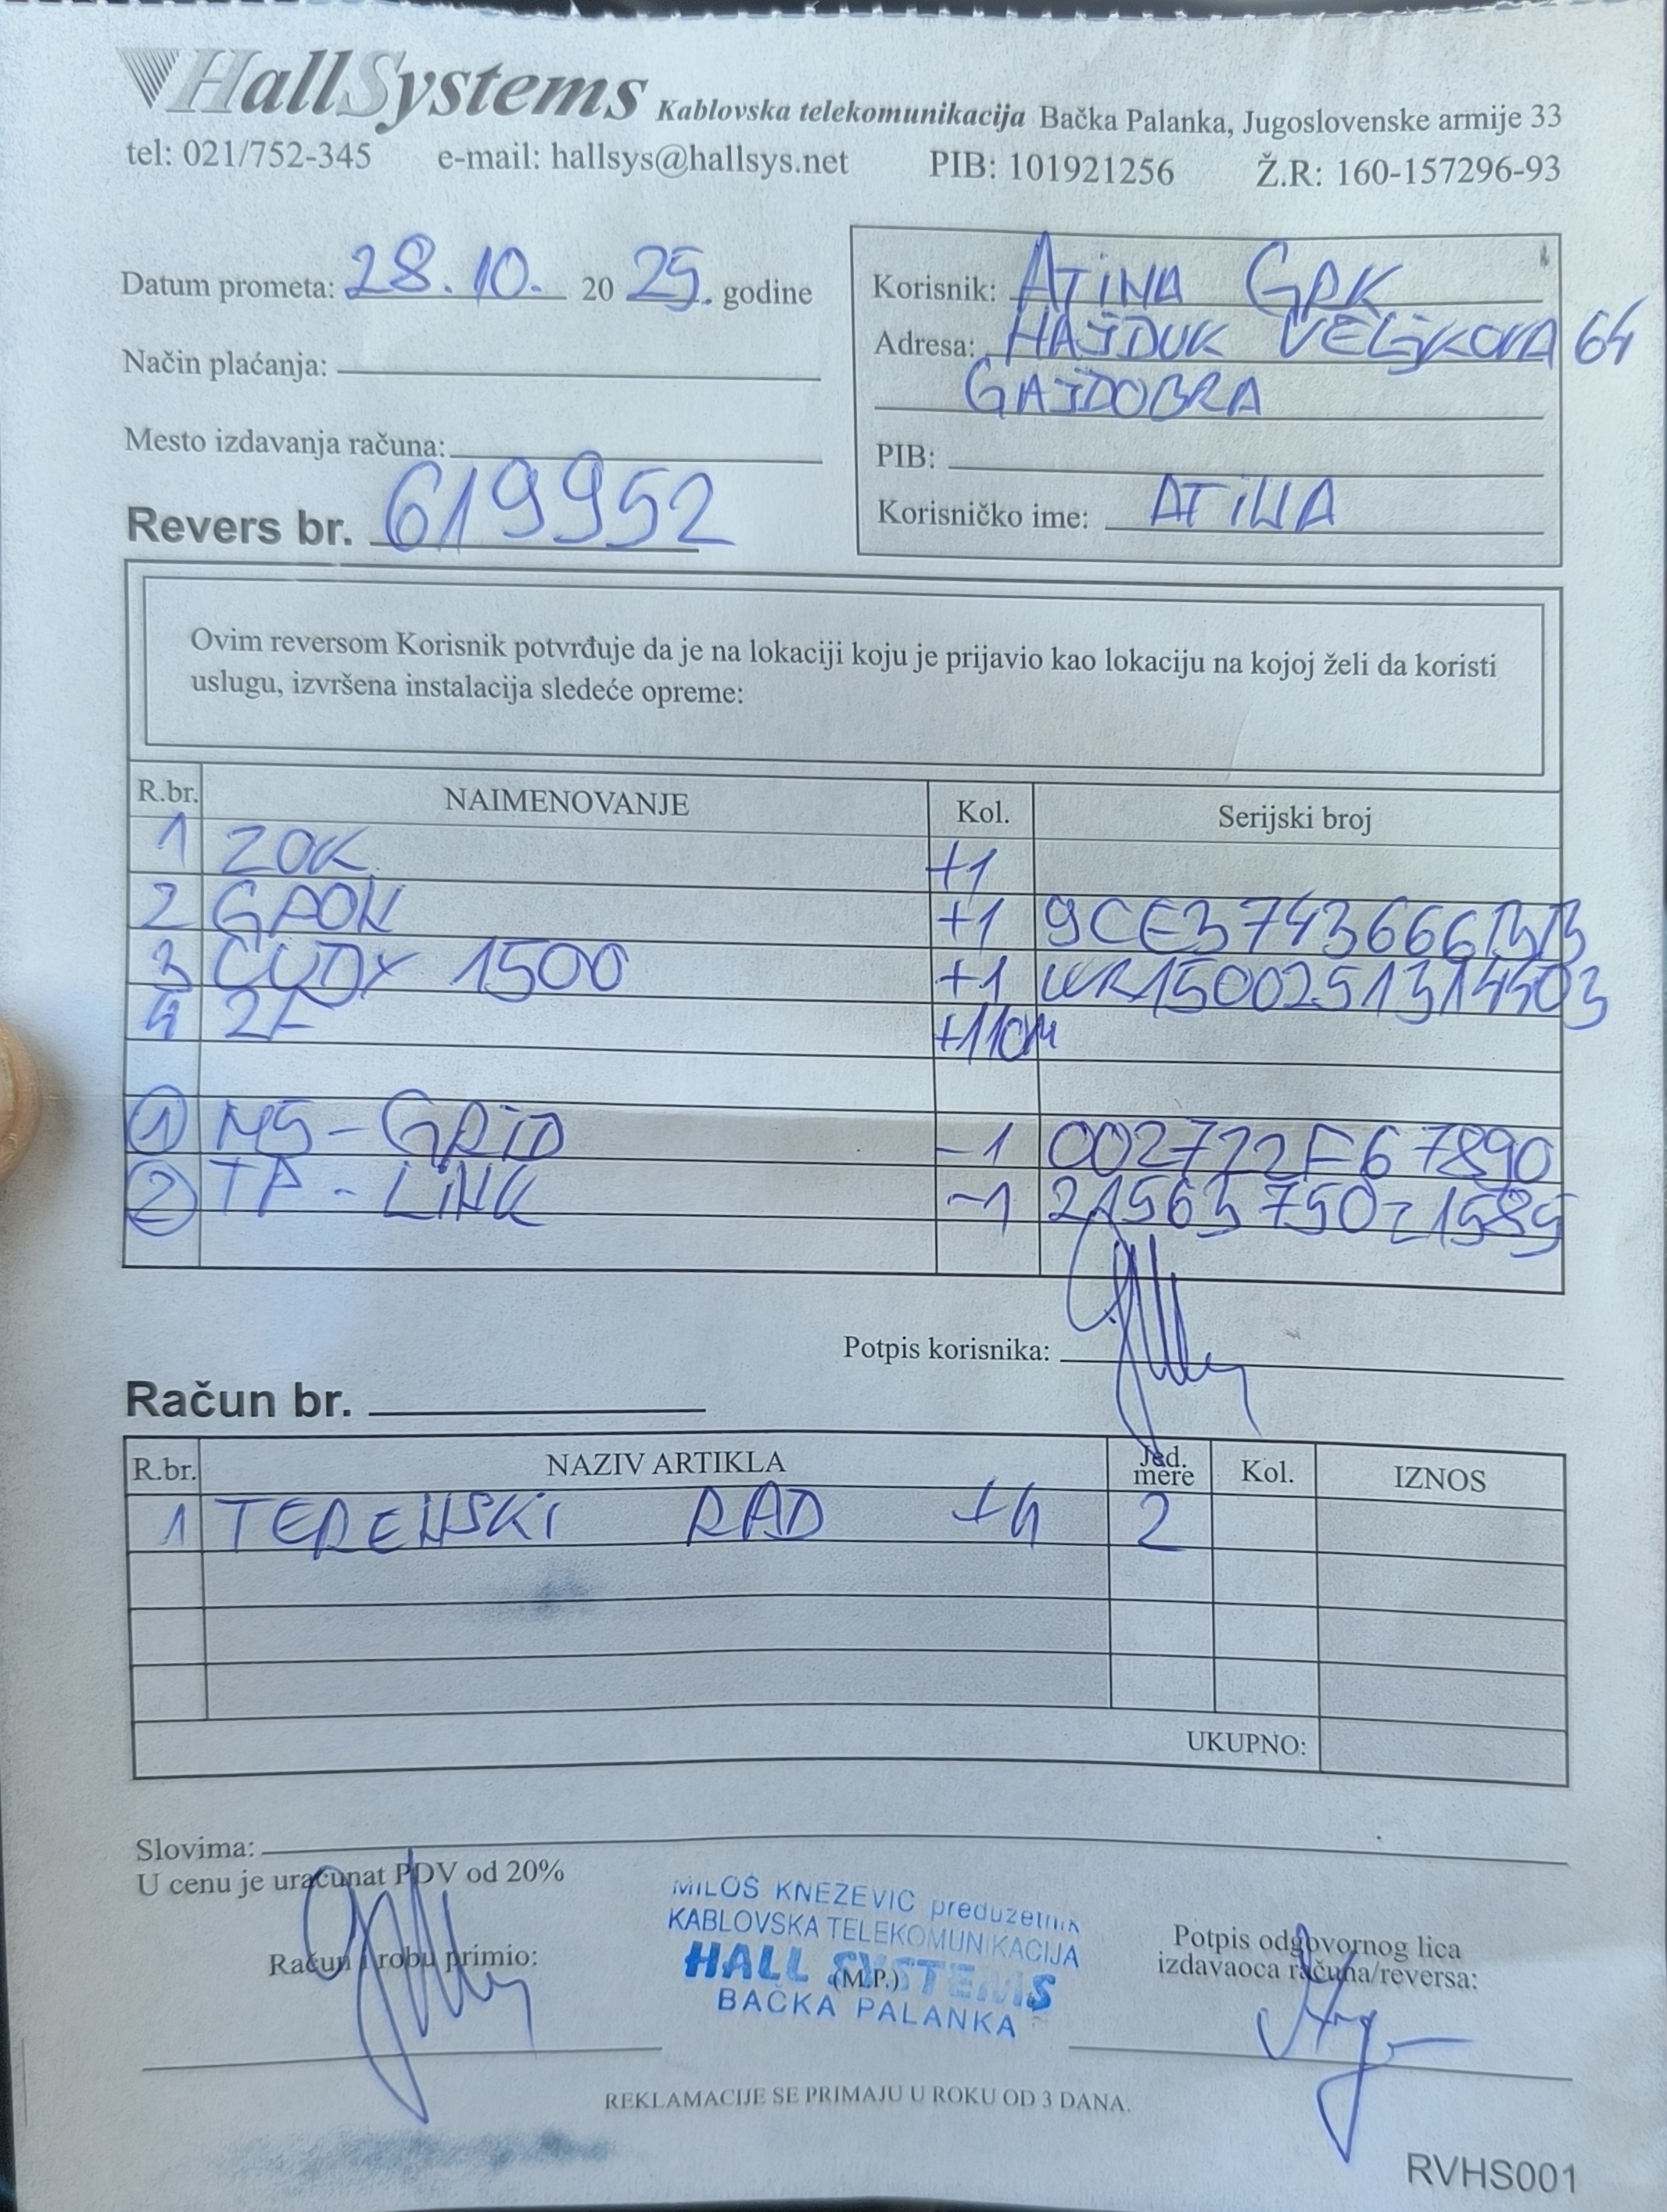 HallSystems Kablovska telekomunikacija Bačka Palanka, Jugoslovenske armije 33
tel: 021/752-345 e-mail: hallsys@hallsys.net PIB: 101921256 Ž.R: 160-157296-93
Datum prometa: 28.10. 20 25. godine
Način plaćanja:
Mesto izdavanja računa:
Revers br. 619952
Korisnik: ATINA GRK
Adresa: HAJDUK VELJKOVA 64
GAJDOBRA
PIB:
Korisničko ime: ATINA
Ovim reversom Korisnik potvrđuje da je na lokaciji koju je prijavio kao lokaciju na kojoj želi da koristi
uslugu, izvršena instalacija sledeće opreme:
R.br. NAIMENOVANJE Kol. Serijski broj
1 ZOK +1
2 GPON +1 9CE3743666BB
3 CUDY 1500 +1 WR1500251314403
4 2F
1 MS-GRID -1 002722F67890
2 TP-LINK -1
Potpis korisnika:
Račun br.
R.br. NAZIV ARTIKLA Jed. mere Kol. IZNOS
1 TERENSKI RAD +4 2
UKUPNO:
Slovima:
U cenu je uračunat PDV od 20%
Račun i robu primio:
MILOŠ KNEŽEVIĆ preduzetnik
KABLOVSKA TELEKOMUNIKACIJA
HALL SYSTEMS
(M.P.)
BAČKA PALANKA
Potpis odgovornog lica
izdavaoca računa/reversa:
REKLAMACIJE SE PRIMAJU U ROKU OD 3 DANA.
RVHS001